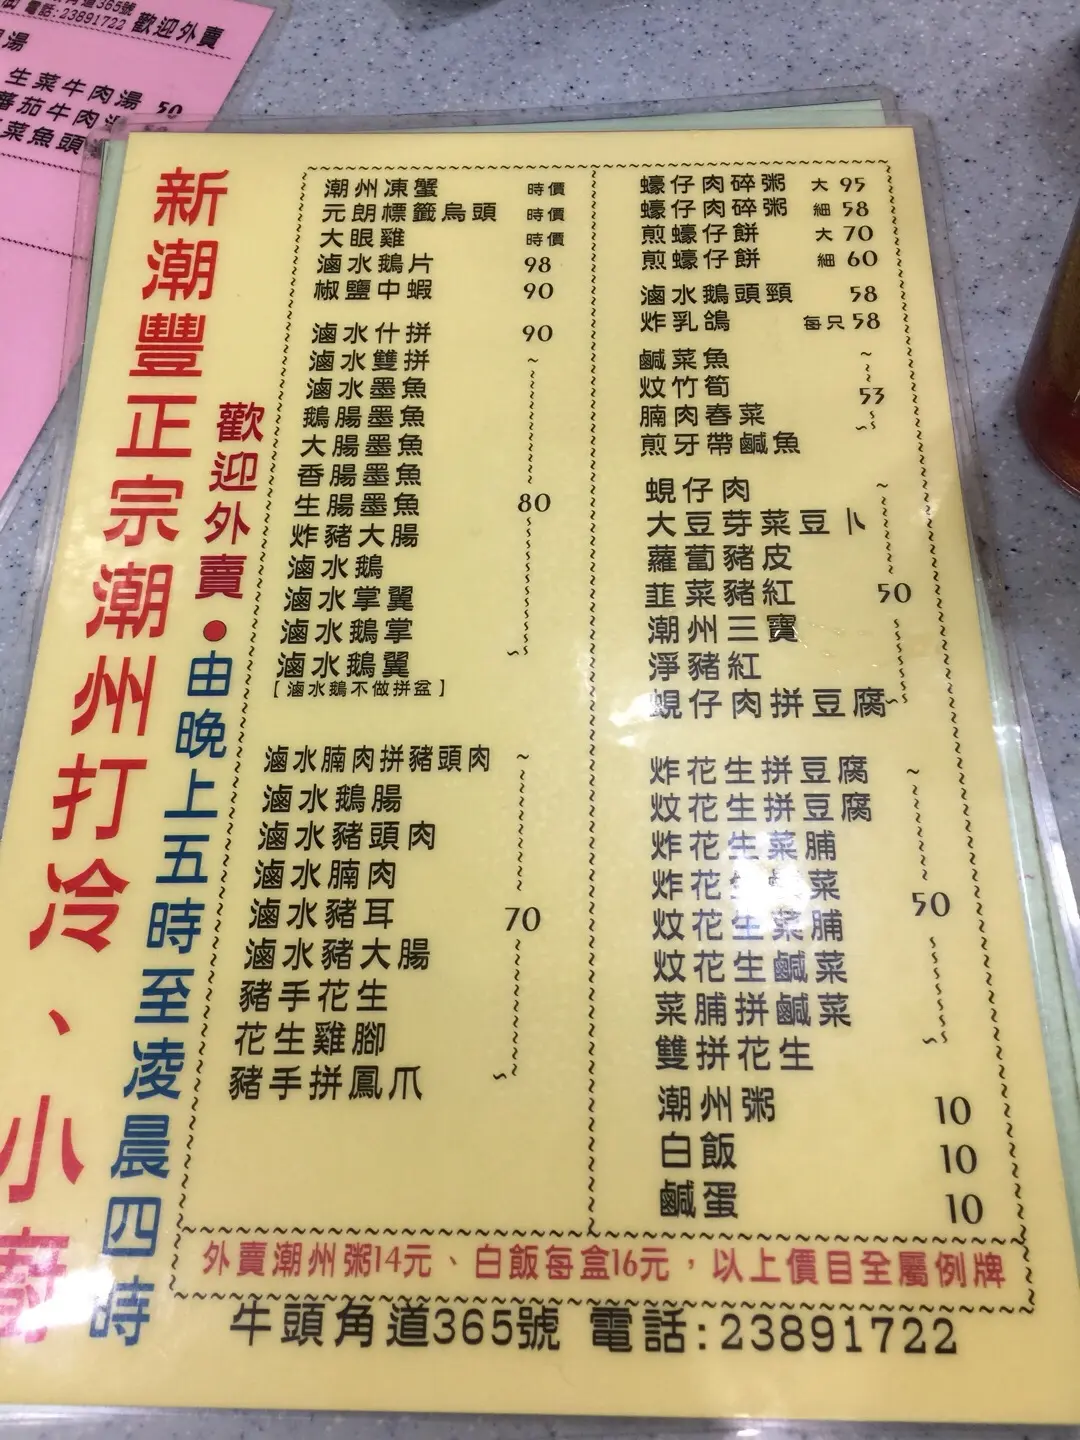 電話:23891722 歡迎外賣
生菜牛肉湯 50
蕃茄牛肉
菜魚頭
新潮豐正宗潮州打冷、小廚
歡迎外賣●由晚上五時至凌晨四時
潮州凍蟹 時價
元朗標籤烏頭 時價
大眼雞 時價
滷水鵝片 98
椒鹽中蝦 90
滷水什拼 90
滷水雙拼
滷水墨魚
鵝腸墨魚
大腸墨魚
香腸墨魚
生腸墨魚 80
炸豬大腸
滷水鵝
滷水掌翼
滷水鵝掌
滷水鵝翼
[滷水鵝不做拼盆]
滷水腩肉拼豬頭肉
滷水鵝腸
滷水豬頭肉
滷水腩肉
滷水豬耳 70
滷水豬大腸
豬手花生
花生雞腳
豬手拼鳳爪
蠔仔肉碎粥 大 95
蠔仔肉碎粥 細 58
煎蠔仔餅 大 70
煎蠔仔餅 細 60
滷水鵝頭頸 58
炸乳鴿 每只 58
鹹菜魚
炆竹筍 53
腩肉春菜
煎牙帶鹹魚
蜆仔肉
大豆芽菜豆卜
蘿蔔豬皮
韭菜豬紅 50
潮州三寶
淨豬紅
蜆仔肉拼豆腐
炸花生拼豆腐
炆花生拼豆腐
炸花生菜脯
炸花生 菜 50
炆花生菜脯
炆花生鹹菜
菜脯拼鹹菜
雙拼花生
潮州粥 10
白飯 10
鹹蛋 10
外賣潮州粥14元、白飯每盒16元，以上價目全屬例牌
牛頭角道365號 電話:23891722